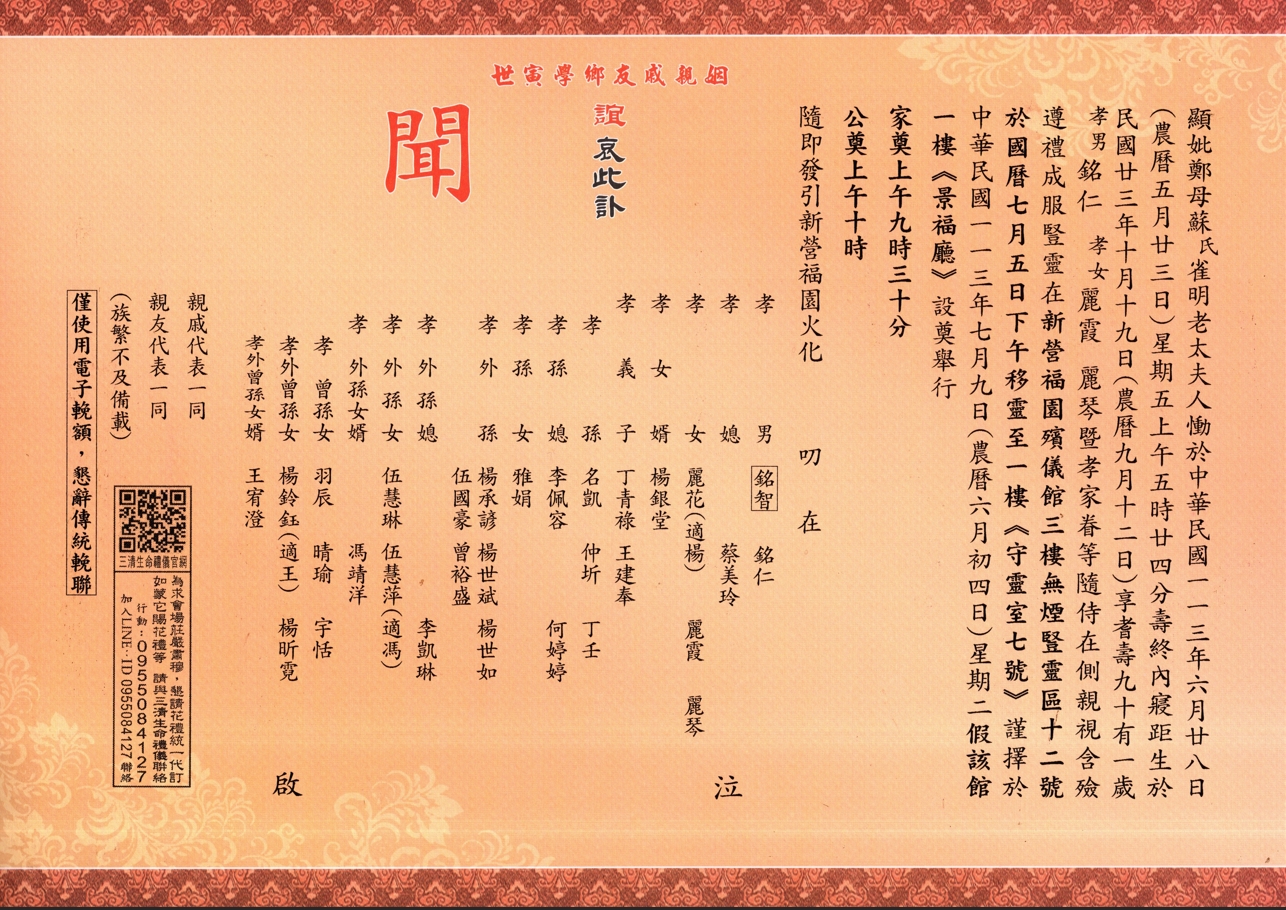 顯妣鄭母蘇氏雀明老太夫人慟於中華民國一一三年六月廿八日
(農曆五月廿三日)星期五上午五時廿四分壽終內寢距生於
民國廿三年十月十九日(農曆九月十二日)享耆壽九十有一歲
孝男銘仁 孝女麗霞 麗琴暨孝家眷等隨侍在側親視含殮
遵禮成服豎靈在新營福園殯儀館三樓無煙豎靈區十二號
於國曆七月五日下午移靈至一樓《守靈室七號》謹擇於
中華民國一一三年七月九日(農曆六月初四日)星期二假該館
一樓《景福廳》設奠舉行
家奠上午九時三十分
公奠上午十時
隨即發引新營福園火化 叨 在
姻親戚友鄉學寅世
誼 哀此訃
聞
孝男 銘智 銘仁
孝媳 蔡美玲 泣
孝女 麗花(適楊) 麗霞 麗琴
孝女婿 楊銀堂
孝義子 丁青祿 王建奉
孝孫 名凱 仲圻 丁壬
孝孫媳 李佩容 何婷婷
孝孫女 雅娟
孝外孫 楊承諺 楊世斌 楊世如
伍國豪 曾裕盛
孝外孫媳 李凱琳
孝外孫女 伍慧琳 伍慧萍(適馮)
孝外孫女婿 馮靖洋
孝曾孫女 羽辰 晴瑜 宇恬
孝外曾孫女 楊鈴鈺(適王) 楊昕霓 啟
孝外曾孫女婿 王宥澄
親戚代表一同
親友代表一同
(族繁不及備載)
僅使用電子輓額,懇辭傳統輓聯
三清生命禮儀官網
為求會場莊嚴肅穆,懇請花禮統一代訂
如蒙它賜花禮等 請與三清生命禮儀聯絡
行動:0955084127
加入LINE:ID 0955084127聯絡